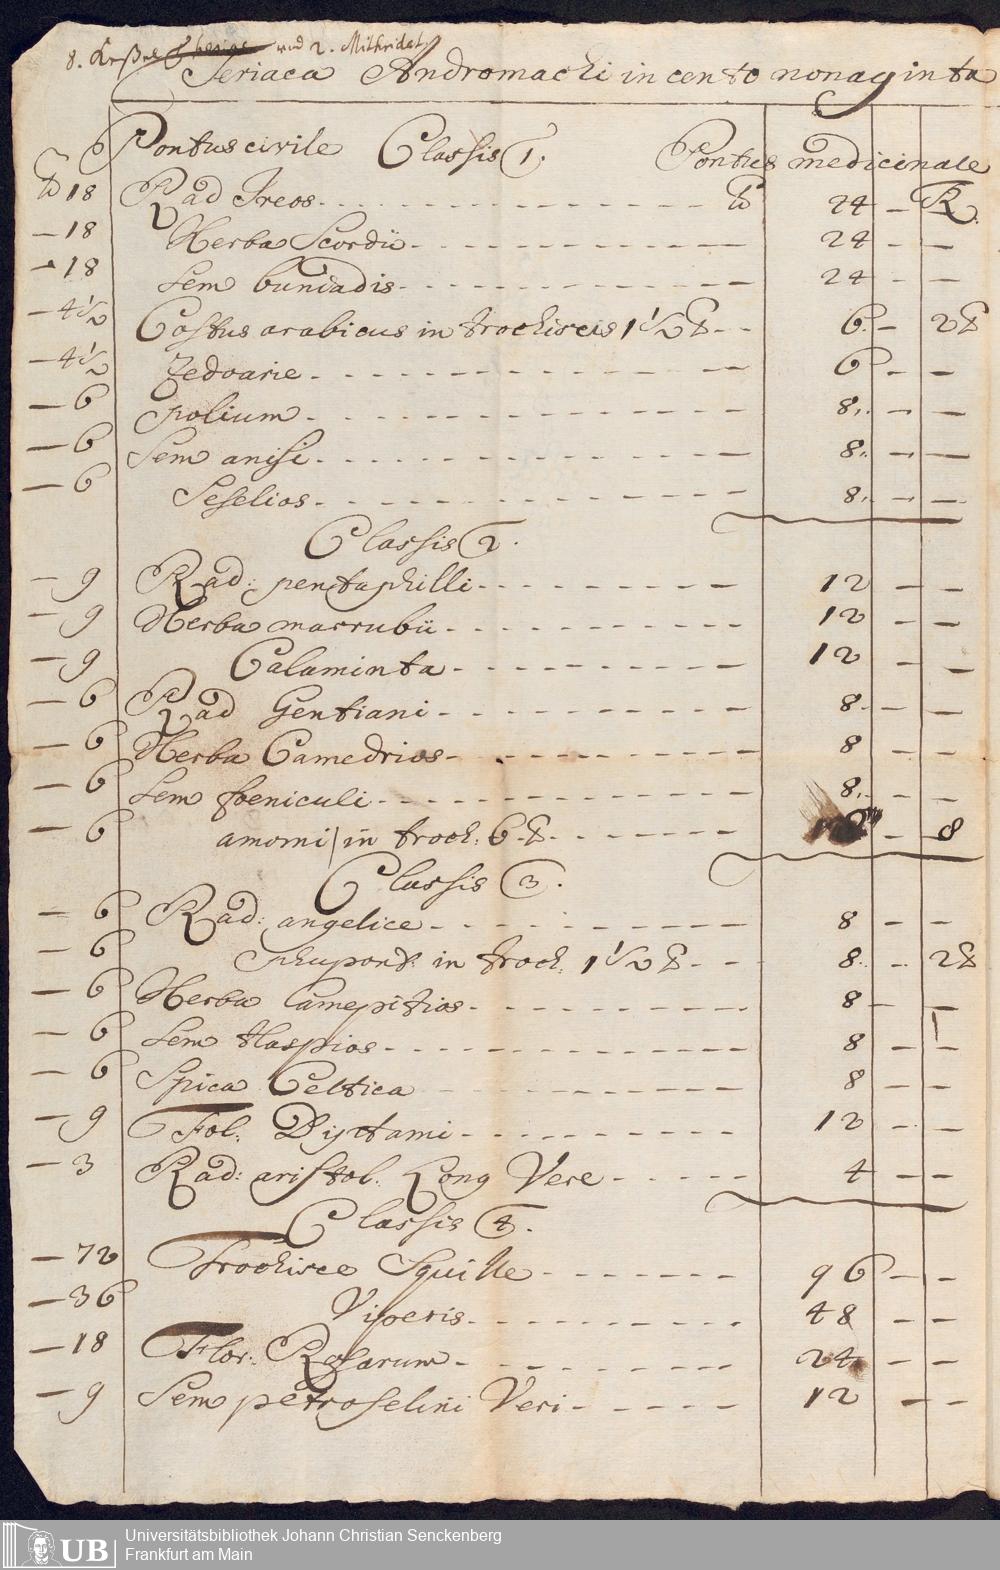 8. und 2. Mithridat
Teriaca Andromachi in cento nonaginta
Pontus civile Classis 1. Pontus medicinale
℔ 18 Rad Ireos ℔ 24 — ℞
— 18 Herba Scordii 24 — —
— 18 Sem buniadis 24 — —
— 4 1/2 Costus arabicus in trochiscis 1 1/2 ℔ 6. — 2 ℔
— 4 1/2 Zedoarie 6 — —
— 6 polium 8. — —
— 6 Sem anisi 8. — —
— 6 Seselios 8. — —
Classis 2.
— 9 Rad: pentaphilli 12 — —
— 9 Herba marrubii 12 — —
— 9 Calaminta 12 — —
— 6 Rad Gentiani 8. — —
— 6 Herba Camedrios 8 — —
— 6 Sem foeniculi 8. — —
— 6 amomi in troch: 6 ℔ — 8
Classis 3.
— 6 Rad: angelice 8 — —
— 6 Phu pont: in troch: 1 1/2 ℔ 8. — 2 ℔
— 6 Herba Camepitios 8 — —
— 6 Sem tlaspios 8 — —
— 6 Spica Celtica 8 — —
— 9 Fol: Dyptami 12 — —
— 3 Rad: aristol: Long Vere 4 — —
Classis 4.
— 72 Trochisce Squille 96 — —
— 36 Viperis 48 — —
— 18 Flor: Rosarum 24 — —
— 9 Sem petroselini Veri 12 — —
UB Universitätsbibliothek Johann Christian Senckenberg
Frankfurt am Main